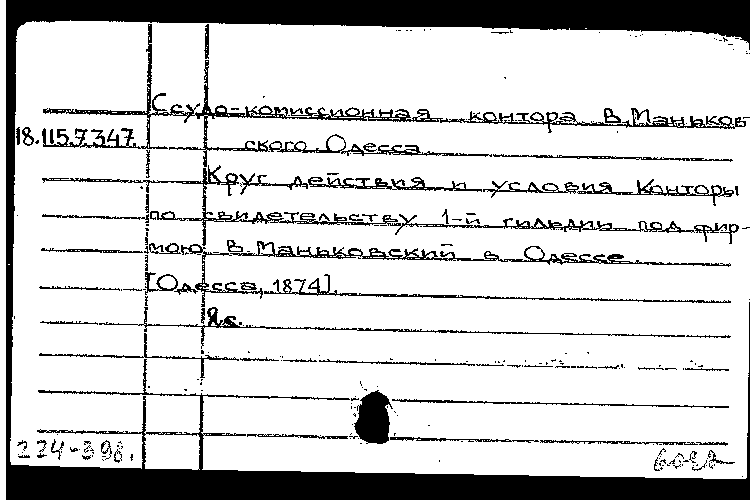 Ссудо-комиссионная контора В.Маньков
18.115.7.347. ского. Одесса.
Круг действия и условия Конторы
по свидетельству 1-й гильдии под фир-
мою В.Маньковский в Одессе.
[Одесса, 1874].
2с.
224-398.